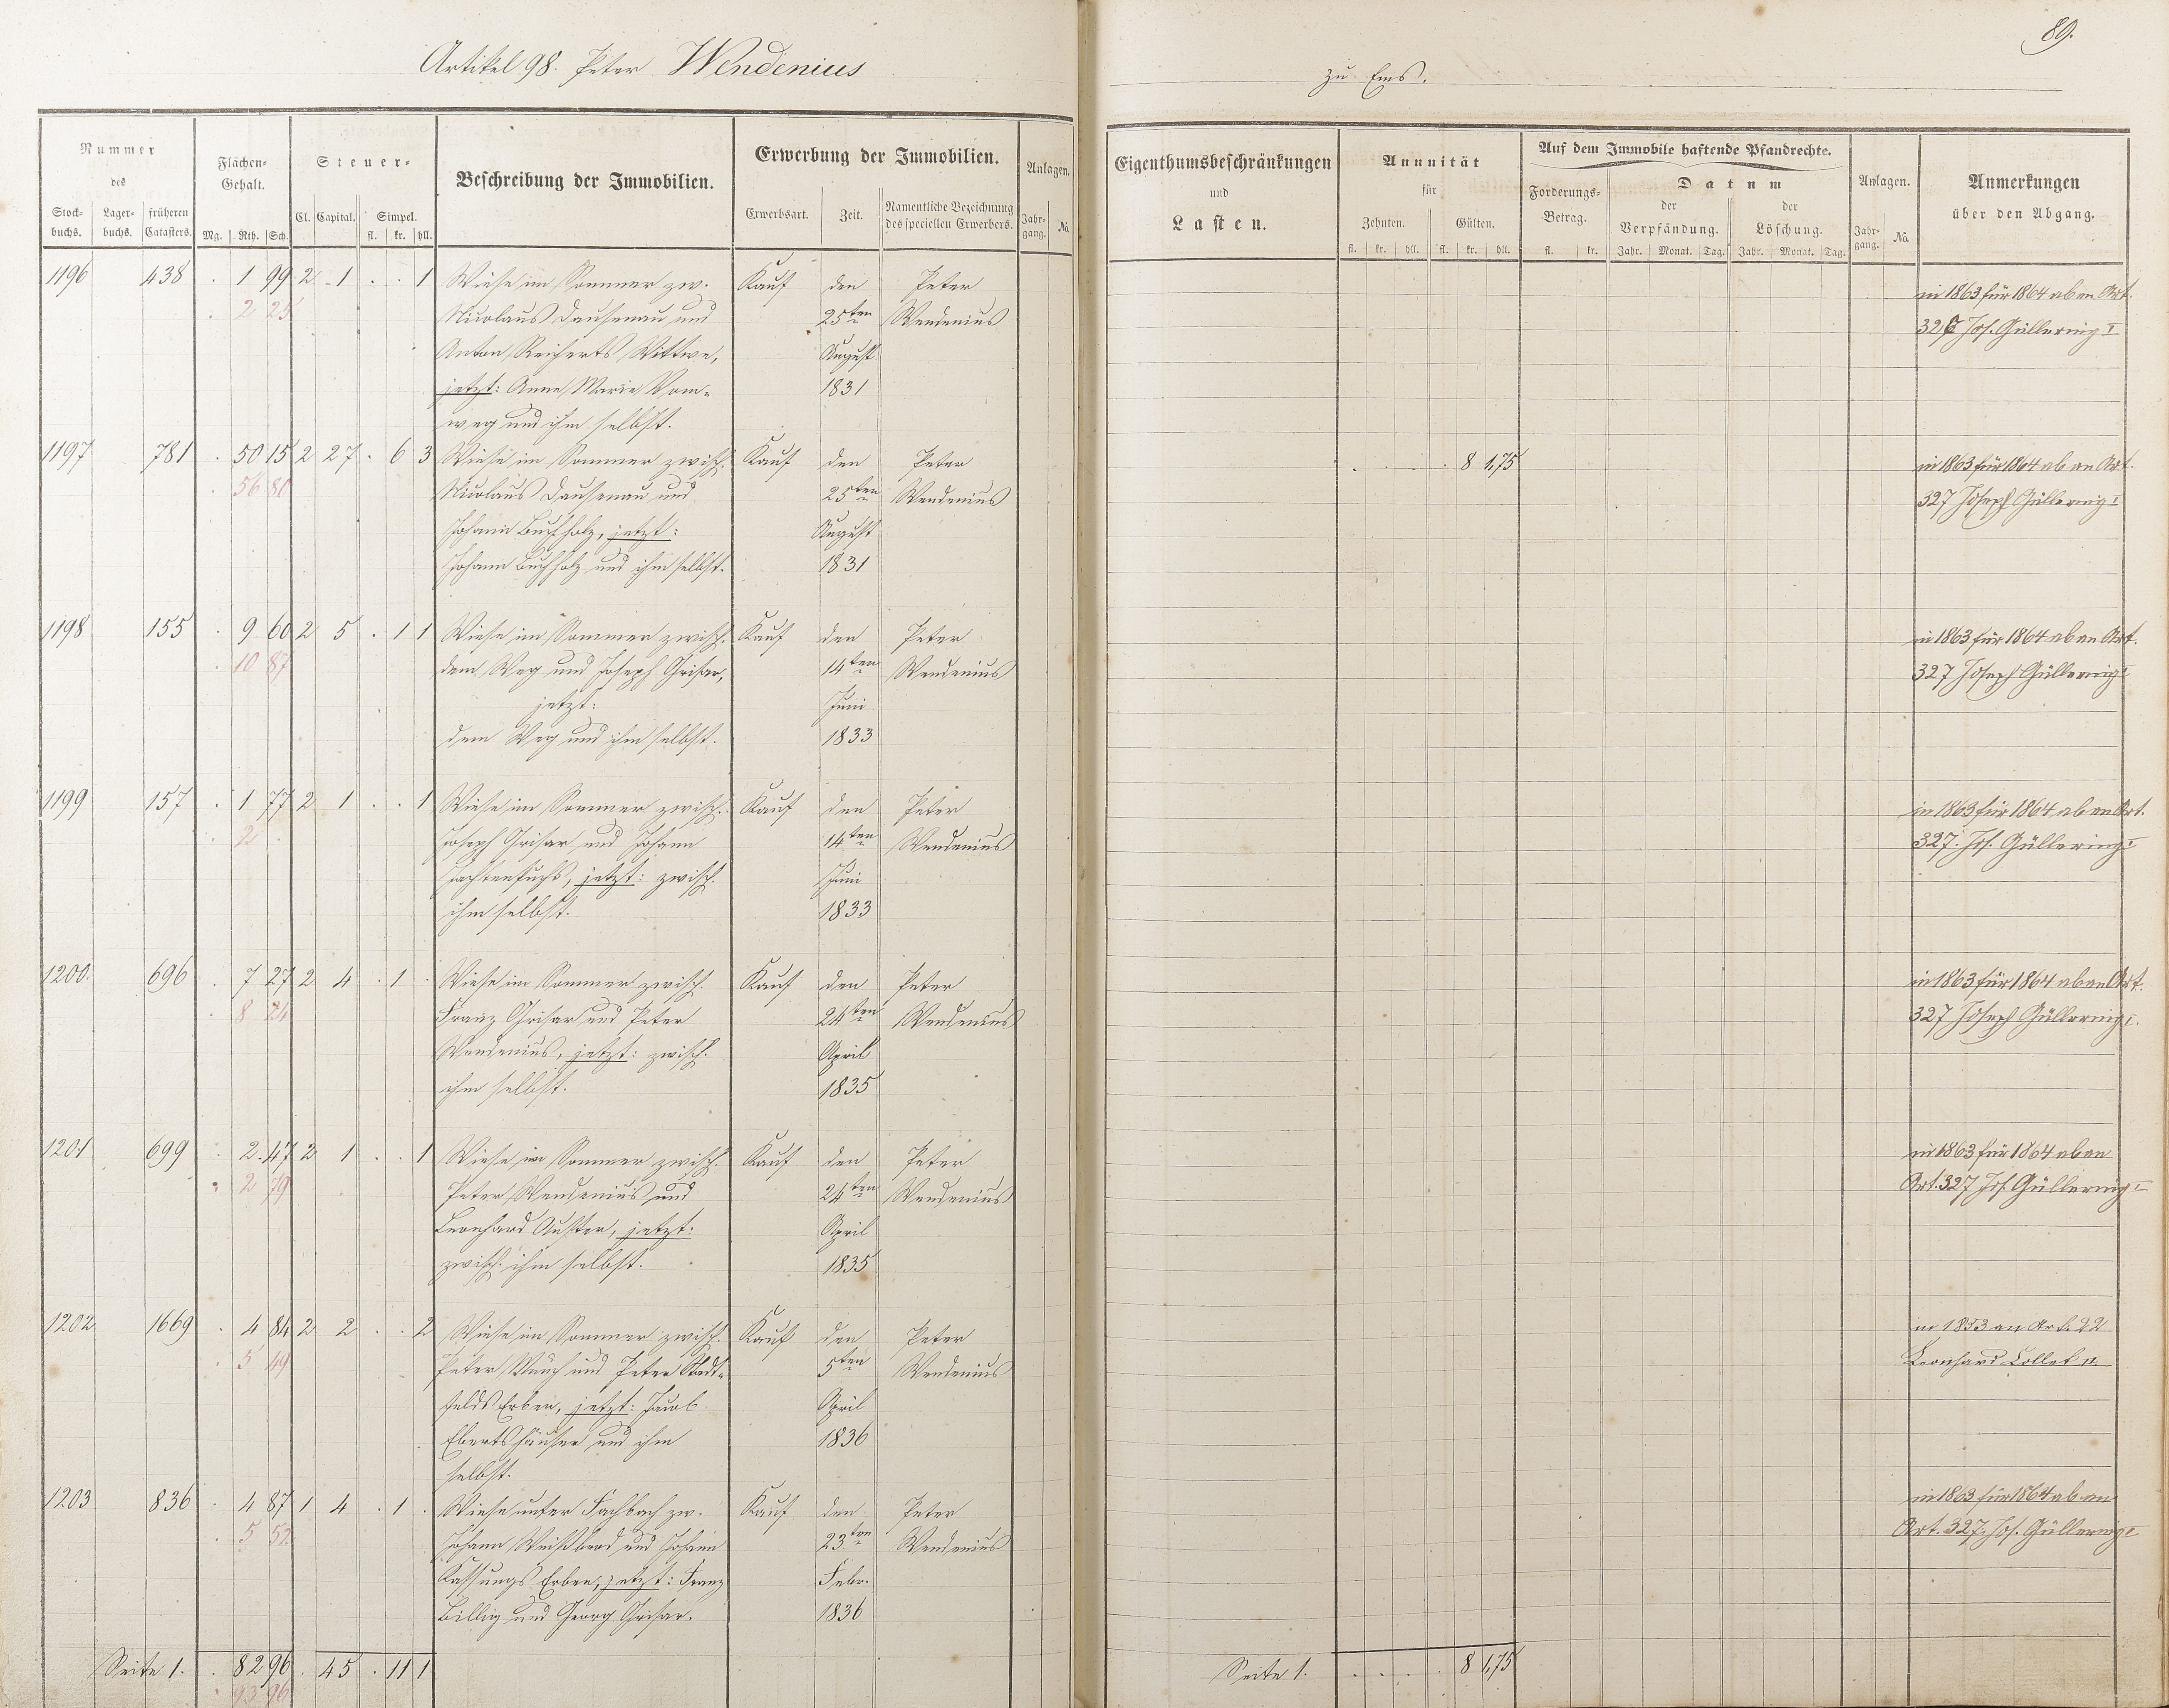 Artikel 98. Peter Wendenius
zu Ems.
89.
Nummer
des
Stock-
buchs.
Lager-
buchs.
früheren
Catasters.
Flächen-
Gehalt.
Mg. Rth. Sch.
Steuer-
Cl. Capital. Simpel.
fl. kr. hll.
Beschreibung der Immobilien.
Erwerbung der Immobilien.
Erwerbsart. Zeit. Namentliche Bezeichnung
des speciellen Erwerbers.
Anlagen.
Jahr-
gang. No.
Eigenthumsbeschränkungen
und
Lasten.
Annuität
für
Zehnten. Gülten.
fl. kr. hll. fl. kr. hll.
Auf dem Immobile haftende Pfandrechte.
Forderungs-
Betrag.
fl. kr.
Datum
der
Verpfändung.
der
Löschung.
Jahr. Monat. Tag. Jahr. Monat. Tag.
Anlagen.
Jahr-
gang. No.
Anmerkungen
über den Abgang.
1196 438 . 1 99 2 1 . . 1 Wiese im Sommer zw. Kauf den Peter in 1863 für 1864 ab an Art.
. 2 25 Nicolaus Dausenau und 25ten Wendenius 326 Jos. Güllering I
Anton Reicherts Wittwe, August
jetzt: Anna Maria Vom- 1831
weg und ihm selbst.
1197 781 . 50 15 2 27 . 6 3 Wiese im Sommer zwisch. Kauf den Peter . . . . 8 1,75 in 1863 für 1864 ab an Art.
. 56 80 Nicolaus Dausenau und 25ten Wendenius 327 Joseph Güllering I
Johann Buchholz, jetzt: August
Johann Buchholz und ihm selbst. 1831
1198 155 . 9 60 2 5 . 1 1 Wiese im Sommer zwisch. Kauf den Peter in 1863 für 1864 ab an Art.
. 10 87 dem Weg und Joseph Grisar, 14ten Wendenius 327 Joseph Güllering I
jetzt: Juni
dem Weg und ihm selbst. 1833
1199 157 . 1 77 2 1 . . 1 Wiese im Sommer zwisch. Kauf den Peter in 1863 für 1864 ab an Art.
. 2 . Joseph Grisar und Johann 14ten Wendenius 327. Jos. Güllering I
jetzt: zwisch. Juni
ihm selbst. 1833
1200. 696 . 7 27 2 4 . 1 . Wiese im Sommer zwisch. Kauf den Peter in 1863 für 1864 ab an Art.
. 8 24 Franz Grisar und Peter 24ten Wendenius 327 Joseph Güllering I.
Wendenius, jetzt: zwisch. April
ihm selbst. 1835
1201 699 . 2 47 2 1 . . 1 Wiese im Sommer zwisch. Kauf den Peter in 1863 für 1864 ab an
. 2 79 Peter Wendenius und 24ten Wendenius Art. 327 Jos. Güllering I
Leonhard Auster, jetzt: April
zwisch. ihm selbst. 1835
1202 1669 . 4 84 2 2 . . 2 Wiese im Sommer zwisch. Kauf den Peter in 1853 an Art. 22
. 5 49 Peter Münch und Peter Stadt- 5ten Wendenius Leonhard Collet II
felds Erben, jetzt: Jacob April
Ebertshäuser und ihm 1836
selbst.
1203 836 . 4 87 1 4 . 1 . Wiese unter Fachbach zw. Kauf den Peter in 1863 für 1864 ab an
. 5 52 Johann Weißbrod und Johann 23ten Wendenius Art. 327. Jos. Güllering I
Erben, jetzt: Franz Febr.
Billig und Georg Grisar. 1836
Seite 1. . 82 96 . 45 . 11 1 Seite 1. . . . . 8 1,75
. 93 96